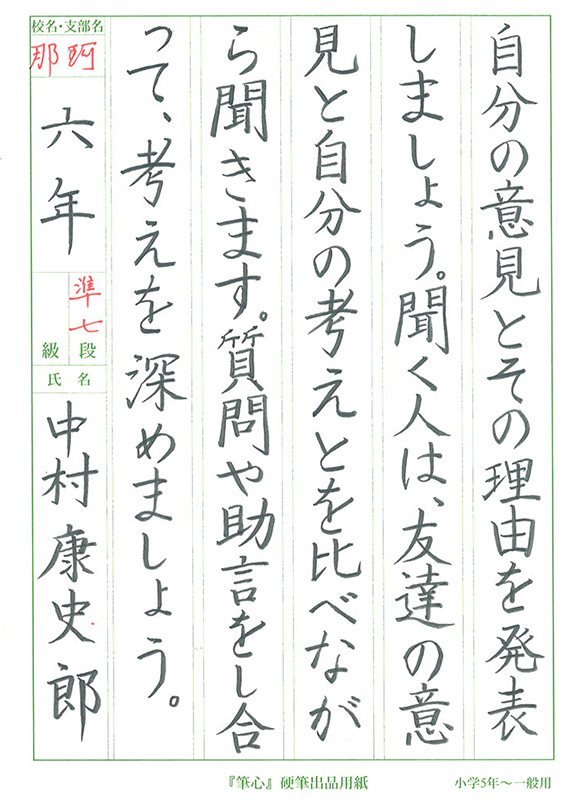 自分の意見とその理由を発表
しましょう。聞く人は、友達の意
見と自分の考えとを比べなが
ら聞きます。質問や助言をし合
って、考えを深めましょう。
校名・支部名
那珂
六年
準七
段
級
氏名
中村康史郎
『筆心』硬筆出品用紙
小学5年〜一般用